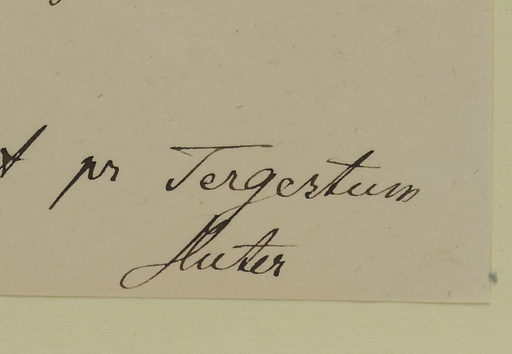 pr Tergestum
Huter